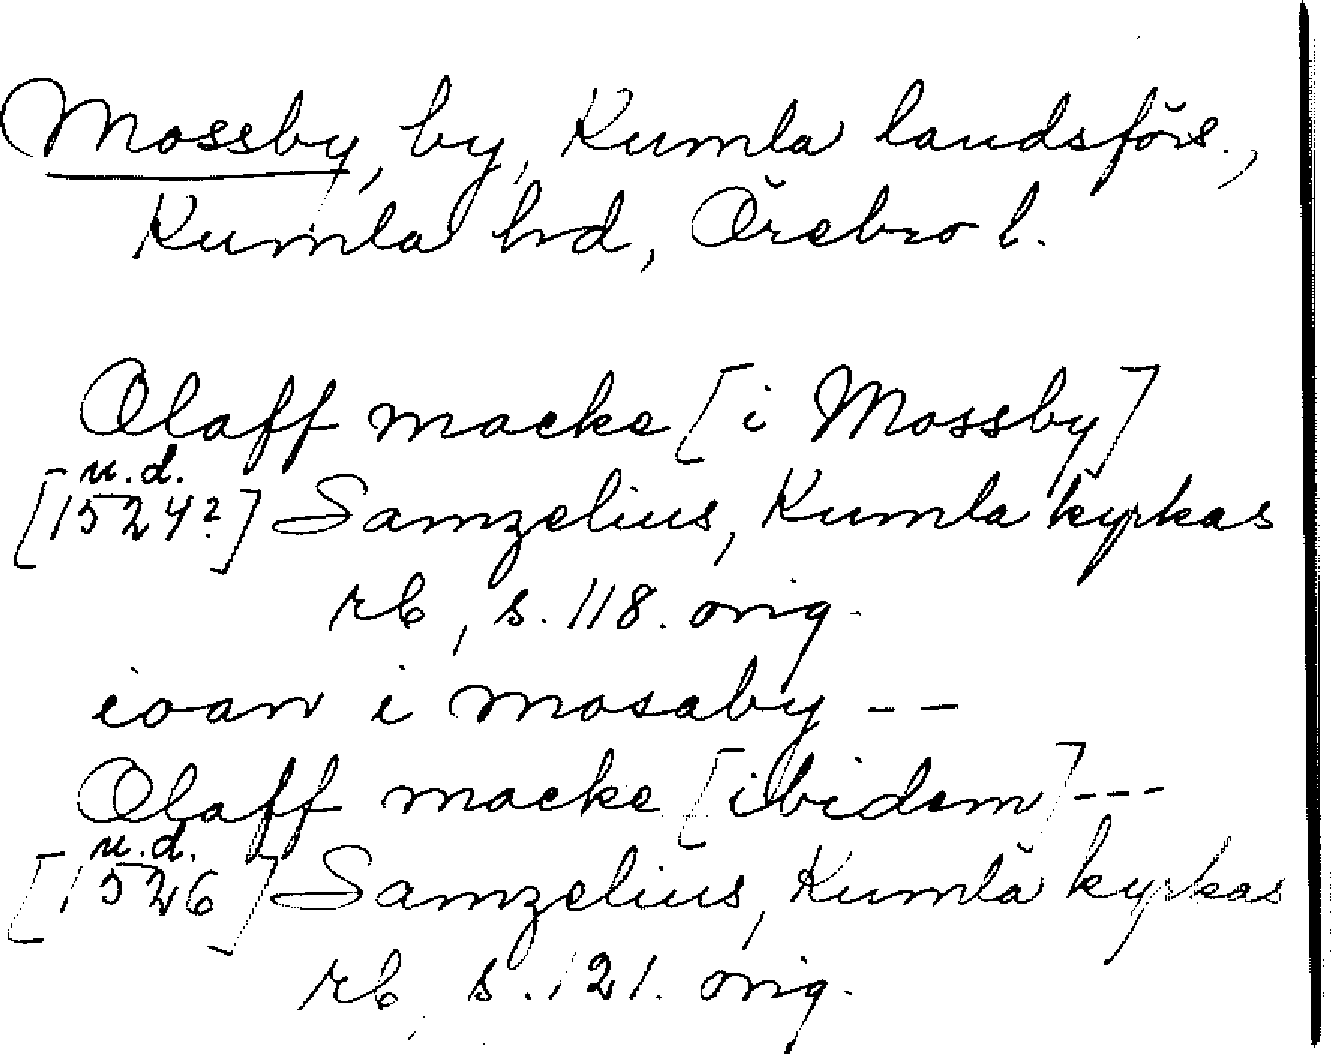 Mossby, by, Kumla landsförs.,
Kumla hd, Örebro l.
Olaff macke [i Mossby]
u.d.
[1524?] Samzelius, Kumla kyrkas
rb, s. 118. orig.
ioan i mosaby --
Olaff macke [ibidem] ---
u.d.
[1526] Samzelius, Kumla kyrkas
rb, s. 121. orig.